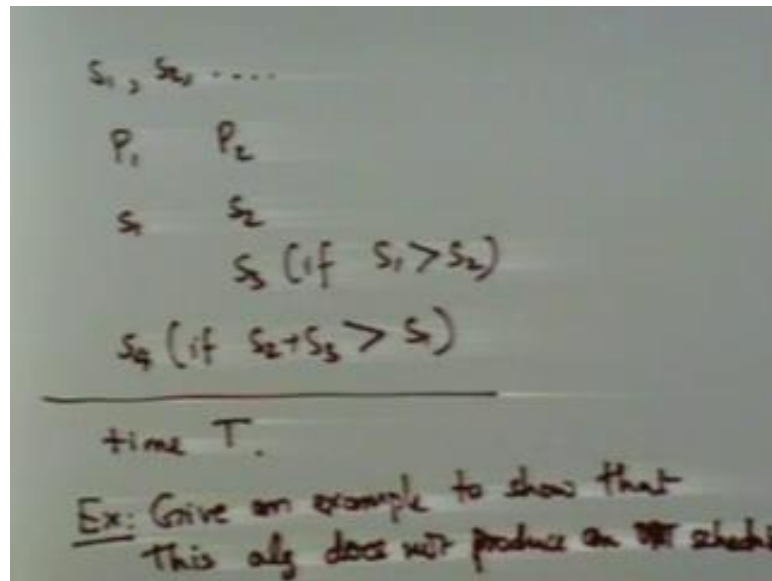 S₁, S₂, ....
P₁ P₂
S₁ S₂
S₃ (if S₁ > S₂)
S₄ (if S₂+S₃ > S₁)
time T.
Ex: Give an example to show that
This alg does not produce an OPT schedul